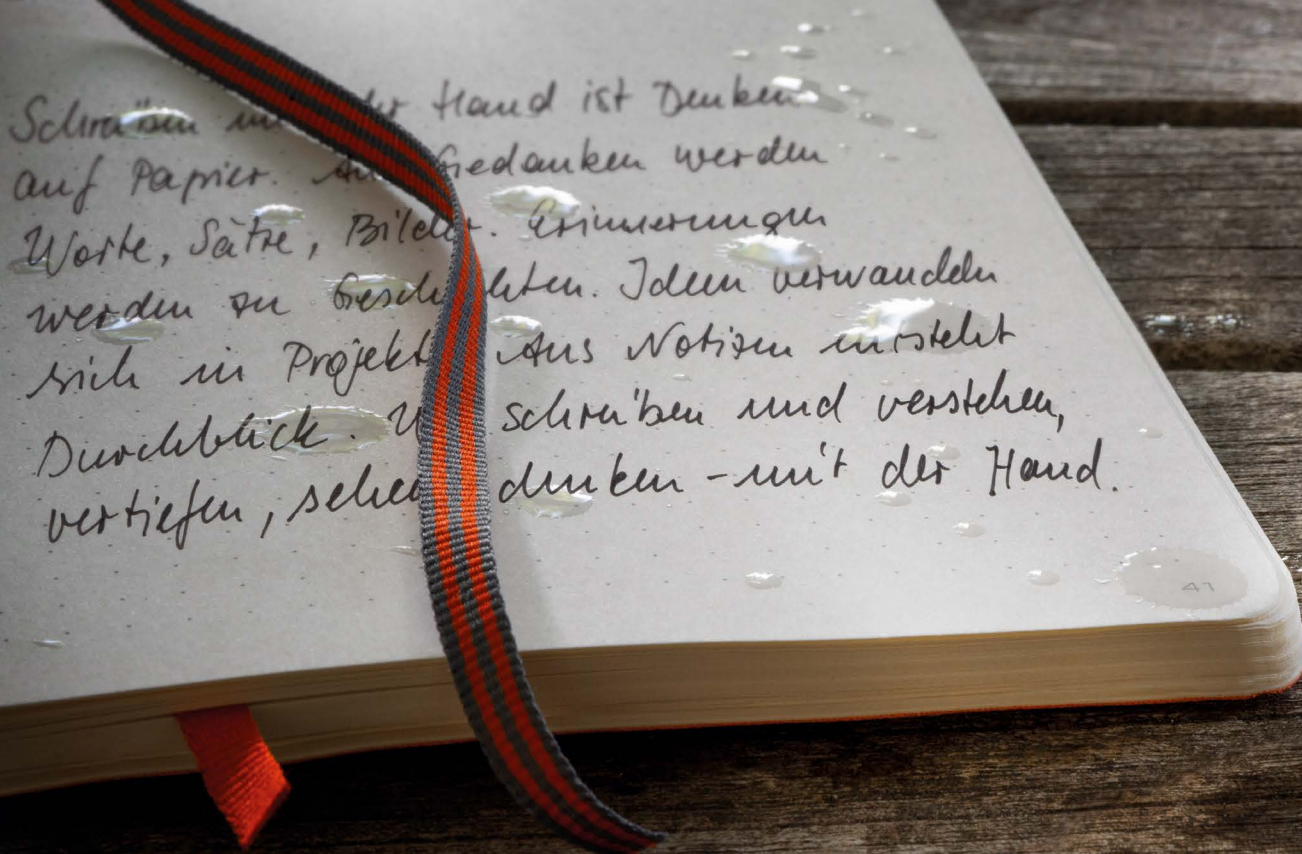 Schreiben der Hand ist Denken
auf Papier. Gedanken werden
Worte, Sätze, Bilder. Erinnerungen
werden zu Geschichten. Ideen verwandeln
sich in Projekte Aus Notizen entsteht
Durchblick. schreiben und verstehen,
vertiefen, sehen denken – mit der Hand.
41